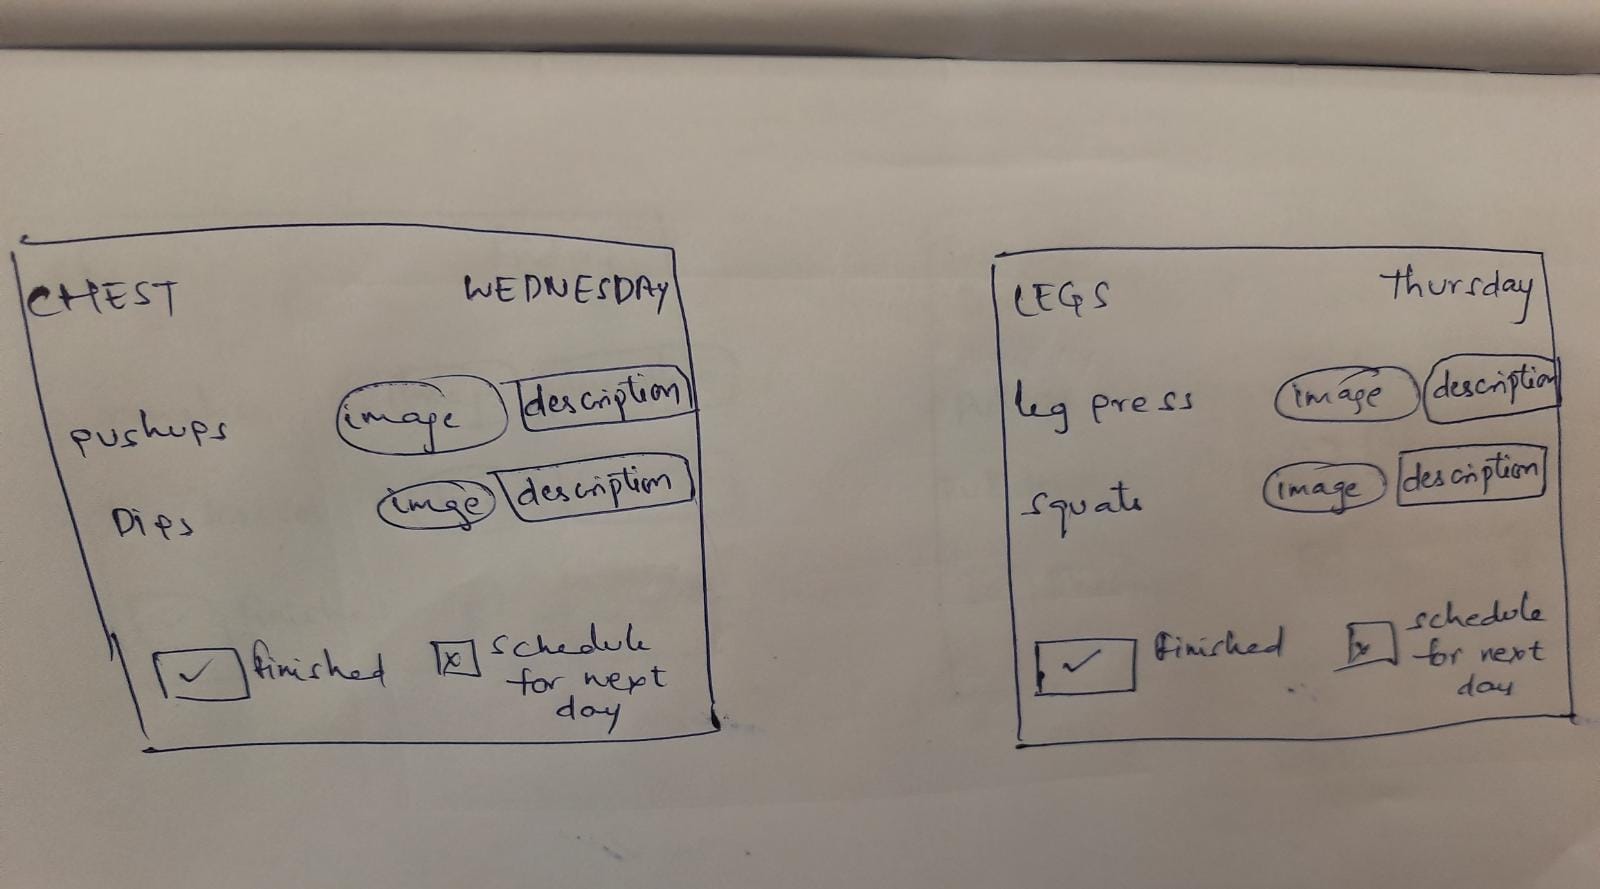 CHEST WEDNESDAY
pushups image description
Dips imge description
✓ finished x schedule
for next
day
LEGS Thursday
leg press image description
squats image description
✓ finished x schedule
for next
day